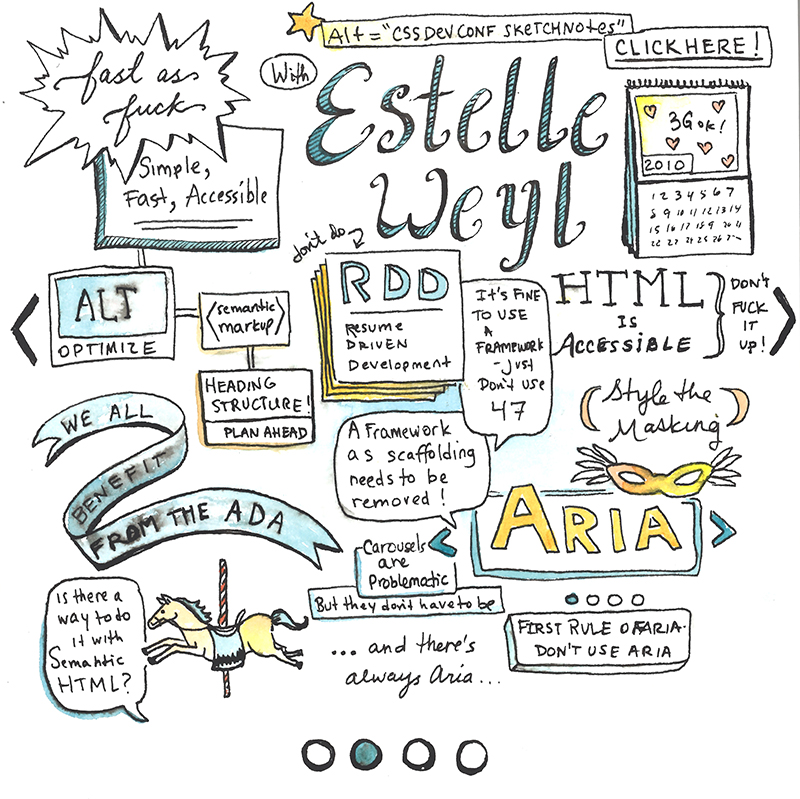 Alt="CSSDEVCONF SKETCHNOTES"
CLICK HERE!
With
Estelle
Weyl
fast as
fuck
Simple,
Fast, Accessible
3G ok!
2010
1 2 3 4 5 6 7
8 9 10 11 12 13 14
15 16 17 18 19 20 21
don't do
RDD
Resume
DRIVEN
Development
ALT
OPTIMIZE
<semantic
markup>
HEADING
STRUCTURE!
PLAN AHEAD
It's FINE
TO USE
A
FRAMEWORK
- just
Don't use
47
HTML
IS
ACCESSIBLE
DON'T
FUCK
IT
UP!
WE ALL
BENEFIT
FROM THE ADA
A Framework
as scaffolding
needs to be
removed!
(Style the
Masking)
ARIA
Carousels
are
Problematic
But they don't have to be
... and there's
always Aria...
FIRST RULE OF ARIA-
DON'T USE ARIA
Is there a
way to do
it with
Semantic
HTML?